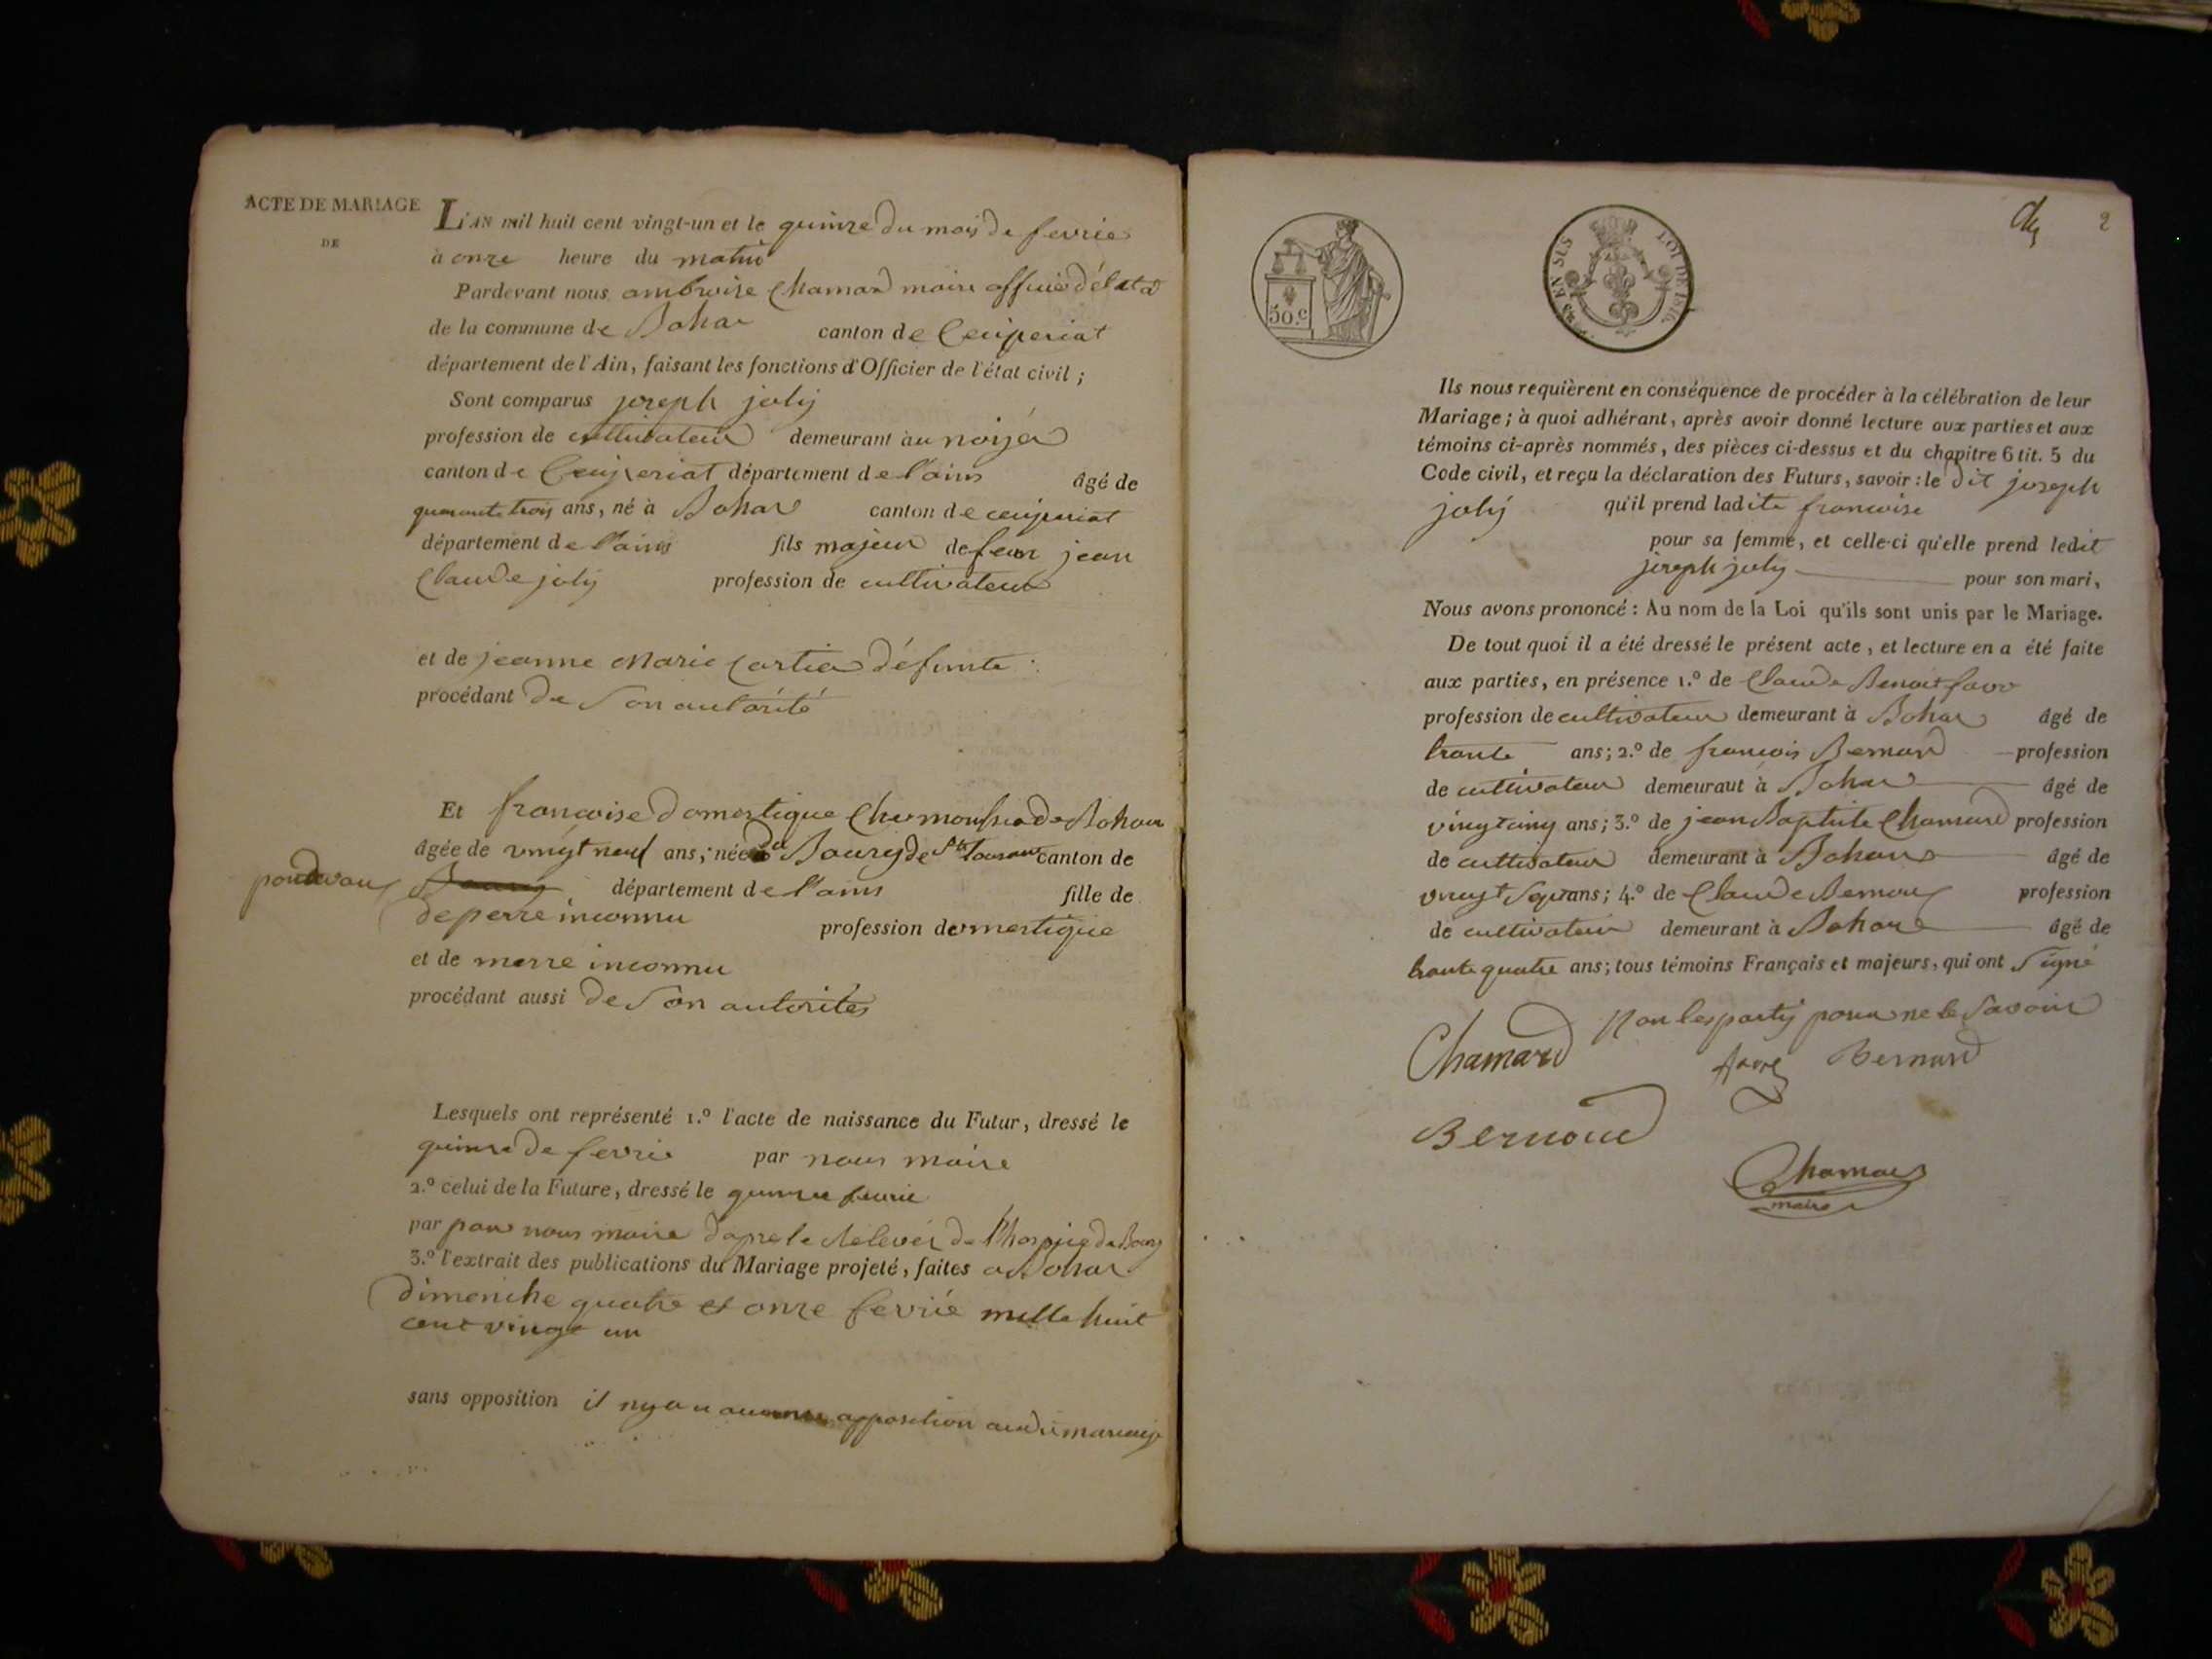 ACTE DE MARIAGE
DE
L'AN mil huit cent vingt-un et le quinze du mois de fevrie
à onze heure du matin
Pardevant nous ambroise Chamard maire
de la commune de Bohas canton de Ceiyeriat
département de l'Ain, faisant les fonctions d'Officier de l'état civil ;
Sont comparus joseph joly
profession de cultivateur demeurant à
canton de Ceiyeriat département de l'ains âgé de
quarante trois ans, né à Bohas canton de ceiyeriat
département de l'ains fils majeur de feu jean
Claude joly profession de cultivateur
et de jeanne Marie Cartier défunte
procédant de Son autorité
Et francoise domestique de Bohas
âgée de vingt neuf ans, née Bourg de canton de
département de l'ains fille de
de perre inconnu profession domestique
et de merre inconnu
procédant aussi de Son autorités
Lesquels ont représenté 1.º l'acte de naissance du Futur, dressé le
quinze de fevrie par nous maire
2.º celui de la Future, dressé le quinze fevrie
par par nous maire dapre le Relevér de l'hospice de Bourg
3.º l'extrait des publications du Mariage projeté, faites a Bohas
dimenche quatre et onze fevrié mille huit
cent vingt un
sans opposition il ny a u aucune opposition audit mariage
50.C
EN SUS
LOI DE 1816.
2
Ils nous requièrent en conséquence de procéder à la célébration de leur
Mariage ; à quoi adhérant, après avoir donné lecture aux parties et aux
témoins ci-après nommés, des pièces ci-dessus et du chapitre 6 tit. 5 du
Code civil, et reçu la déclaration des Futurs, savoir : le dit joseph
joly qu'il prend ladite francoise
pour sa femme, et celle-ci qu'elle prend ledit
joseph joly pour son mari,
Nous avons prononcé : Au nom de la Loi qu'ils sont unis par le Mariage.
De tout quoi il a été dressé le présent acte, et lecture en a été faite
aux parties, en présence 1.º de Claude Benoit favre
profession de cultivateur demeurant à Bohas âgé de
trante ans ; 2.º de francois Bernard profession
de cultivateur demeuraut à Bohas âgé de
vingt cinq ans ; 3.º de jean Baptiste Chamard profession
de cultivateur demeurant à Bohas âgé de
vingt Sept ans ; 4.º de Claude Bernoud profession
de cultivateur demeurant à Bohas âgé de
trante quatre ans ; tous témoins Français et majeurs, qui ont Signé
Non les party pour ne le Savoir
Chamard favre Bernard
Bernoud
Chamard
maire